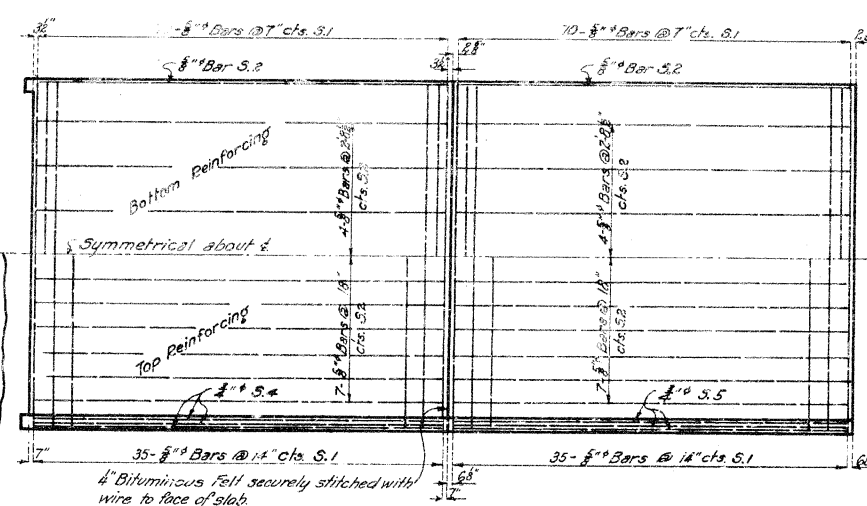 3½"
-⅝"ᶲ Bars @ 7" cts. S.1
70-⅝"ᶲ Bars @ 7" cts. S.1
⅝"ᶲ Bar S.2
3½"
⅝"ᶲ Bar S.2
Bottom Reinforcing
4-⅝"ᶲ Bars @ 2'-8½"
cts. S.2
4-⅝"ᶲ Bars @ 2'-8½"
cts. S.2
Symmetrical about ℄
Top Reinforcing
7-⅝"ᶲ Bars @ 18"
cts. S.2
7-⅝"ᶲ Bars @ 18"
cts. S.2
¾"ᶲ S.4
¾"ᶲ S.5
7"
35-⅝"ᶲ Bars @ 14" cts. S.1
35-⅝"ᶲ Bars @ 14" cts. S.1
¼" Bituminous Felt securely stitched with
wire to face of slab.
7"